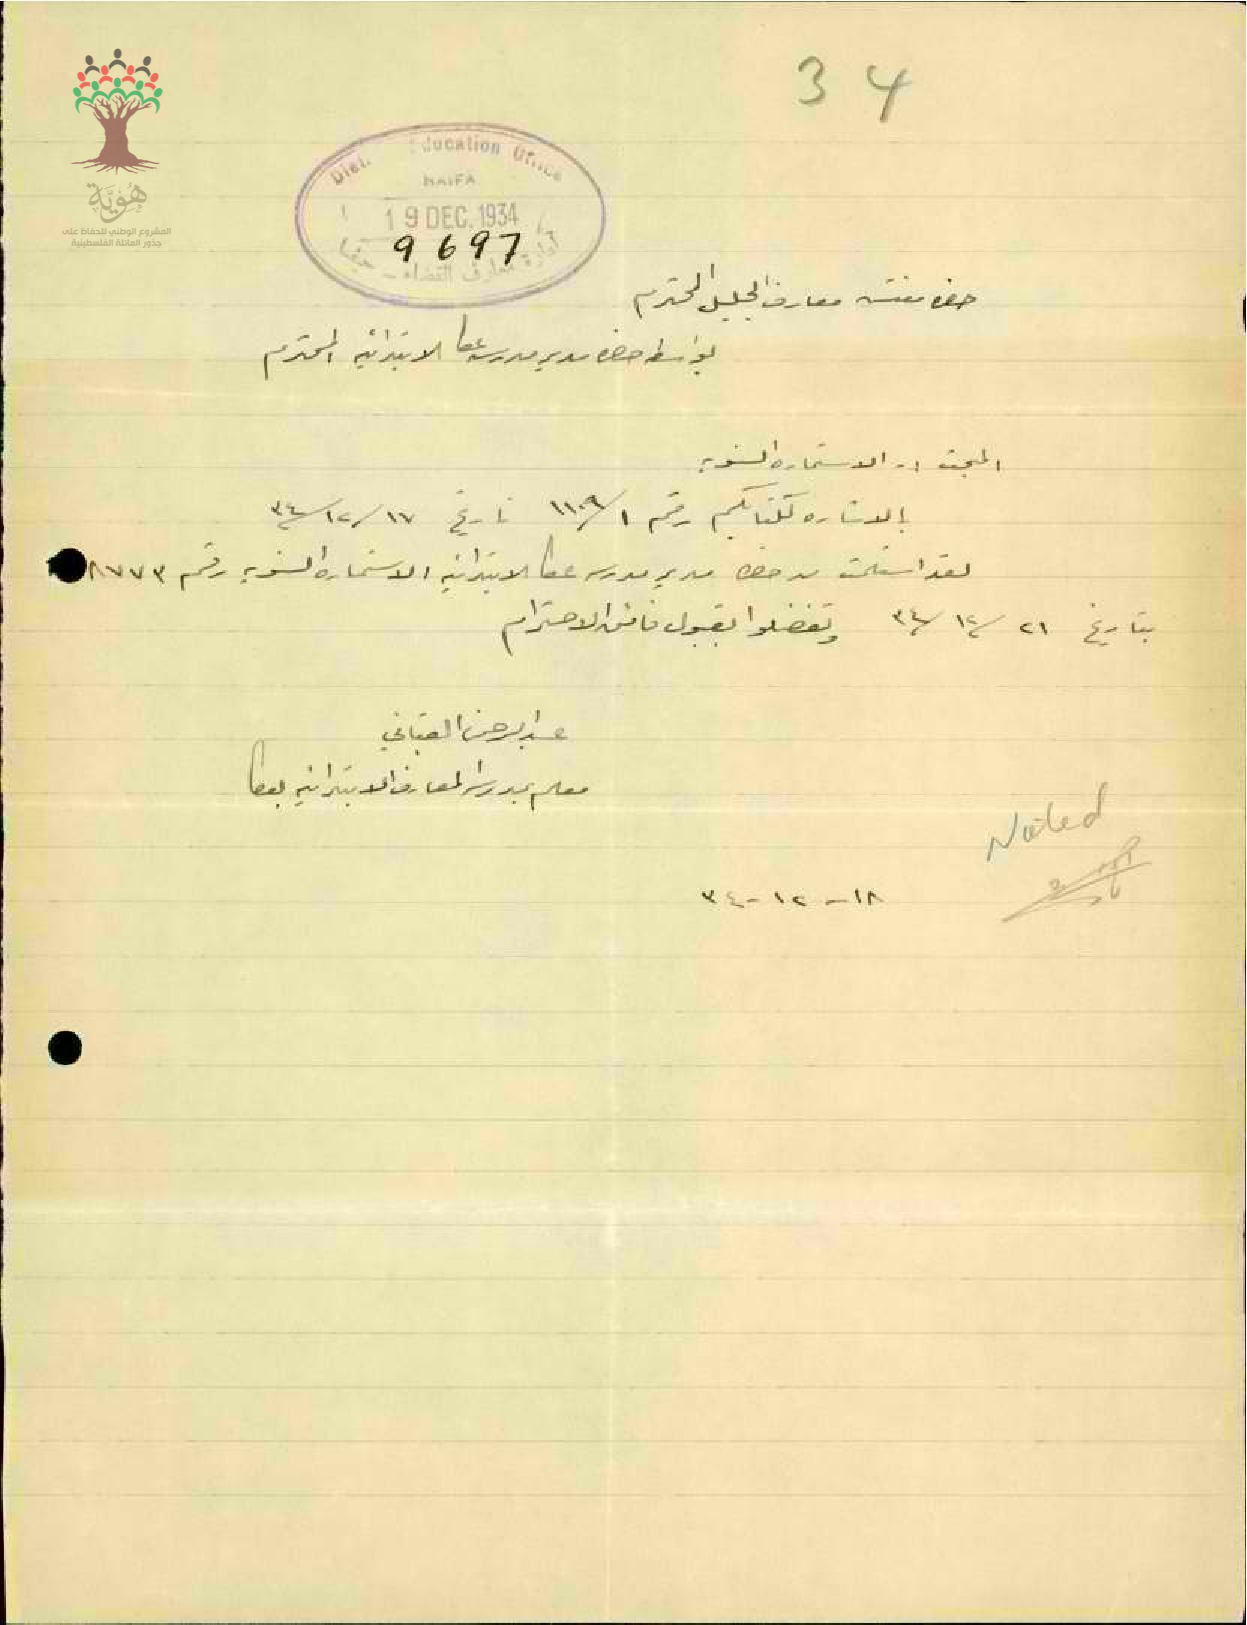 34
هُويَّة
المشروع الوطني للحفاظ على
جذور العائلة الفلسطينية
Dist. Education Office
HAIFA
19 DEC. 1934
9697
ادارة معارف القضاء - حيفا
حضرة مفتش معارف الجليل المحترم
بواسطة حضرة مدير مدرسة عكا الابتدائية المحترم
المبحث :- الاستمارة السنوية
بالاشارة لكتابكم رقم ١١٠٩/١ تاريخ ١٧/١٢/٣٤
لقد استلمت من حضرة مدير مدرسة عكا الابتدائية الاستمارة السنوية رقم ٨٧٧٣
بتاريخ ٢١/١٢/٣٤ وتفضلوا بقبول فائق الاحترام
عبد الرحمن القباني
معلم بمدرسة المعارف الابتدائية بعكا
Noted
١٨-١٢-٣٤